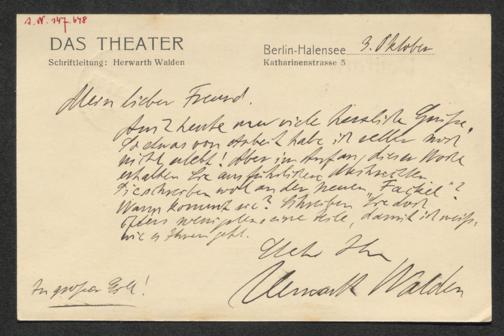 I.N. 147.648
DAS THEATER
Schriftleitung: Herwarth Walden
Berlin-Halensee 3. Oktober
Katharinenstrasse 5
Mein lieber Freund.
heute nur viele herzliche Grüße.
So etwas von Arbeit habe ich selber noch
nicht erlebt! Aber im Anfang dieser Woche
erhalten Sie ausführlichere Nachrichten.
Sie schreiben wohl an der neuen „Fackel“?
Wann kommt sie? Schreiben Sie doch
öfters wenigstens eine Zeile, damit ich weiß,
wie es Ihnen geht.
Stets Ihr
Herwarth Walden
In großer Eile!